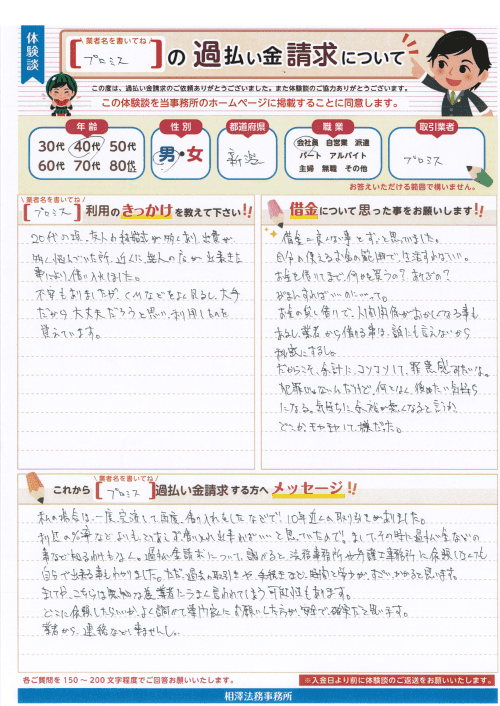 体験談
業者名を書いてね
[プロミス]の 過払い金請求について
この度は、過払い金請求のご依頼ありがとうございました。また体験談のご協力ありがとうございます。
この体験談を当事務所のホームページに掲載することに同意します。
年齢
30代 40代 50代
60代 70代 80代
性別
男・女
都道府県
新潟
職業
会社員 自営業 派遣
パート アルバイト
主婦 無職 その他
取引業者
プロミス
お答えいただける範囲で構いません。
業者名を書いてね
[プロミス]利用のきっかけを教えて下さい!!
20代の頃、友人の結婚式が多くあり、出費が
多く悩んでいた所、近くに無人の店が出来た
事により借り入れしました。
不安もありましたが、CMなどをよく見るし、大手
だから大丈夫だろうと思い、利用したのを
覚えています。
借金について思った事をお願いします!!
借金=良くない事とずっと思っていました。
自分の使えるお金の範囲で、生活すればいい。
お金を借りてまで、何を買うの?あそぶの?
がまんすればいいのに…って。
お金の貸し借りで、人間関係がおかしくなる事も
あるし、業者から借りる事は、誰にも言えないから
秘密にするし。
だからこそ、余計に、コソコソして、罪悪感みたいな。
犯罪じゃないんだけど、何となく、後めたい気持ち
になる。気持ちに余裕が無くなると言うか
どこかモヤモヤして嫌だった。
業者名を書いてね
これから[プロミス]過払い金請求する方へメッセージ!!
私の場合は、一度完済して再度、借り入れをしたなどで、10年近くの取り引きがありました。
利息の%率などよりも、とりあえずお借り入れ出来ればいいと思っていたので、まして、その時に過払い金などの
事など知るわけもなく。過払い金請求について、調べると、法務事務所や弁護士事務所に依頼しなくても
自らで出来る事もわかりました。ただ、過去の取引きや、手続きなど、時間と労力が、すごいかかると思います。
まして や、こちらは無知な為業者にうまく言われてしまう可能性もあります。
どこに依頼したらいいか、よく調べて専門家にお願いした方が、安全で、確実だと思います。
業者から、連絡など来ませんし。
各ご質問を 150～200文字程度でご回答お願いいたします。
※入金日より前に体験談のご返送をお願いいたします。
相澤法務事務所